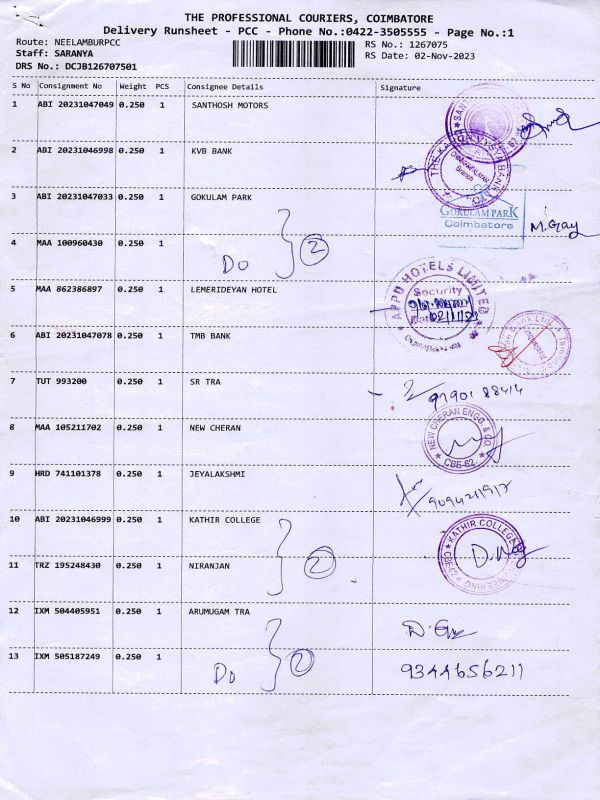 THE PROFESSIONAL COURIERS, COIMBATORE
Delivery Runsheet - PCC - Phone No.:0422-3505555 - Page No.:1
Route: NEELAMBURPCC
Staff: SARANYA
DRS No.: DCJB126707501
RS No.: 1267075
RS Date: 02-Nov-2023
S No Consignment No Weight PCS Consignee Details Signature
1 ABI 20231047049 0.250 1 SANTHOSH MOTORS
2 ABI 20231046998 0.250 1 KVB BANK
THE KARUR VYSYA BANK LTD.
Branch
3 ABI 20231047033 0.250 1 GOKULAM PARK
GOKULAM PARK
Coimbatore
4 MAA 100960430 0.250 1
Do 2
5 MAA 862386897 0.250 1 LEMERIDEYAN HOTEL
APPU HOTELS LIMITED
Security
6 ABI 20231047078 0.250 1 TMB BANK
7 TUT 993200 0.250 1 SR TRA
9790188414
8 MAA 105211702 0.250 1 NEW CHERAN
NEW CHERAN ENGG. & CO.
CBE-62
9 HRD 741101378 0.250 1 JEYALAKSHMI
10 ABI 20231046999 0.250 1 KATHIR COLLEGE
KATHIR COLLEGE
ENGINEERING
11 TRZ 195248430 0.250 1 NIRANJAN
2
12 IXM 504405951 0.250 1 ARUMUGAM TRA
13 IXM 505187249 0.250 1
Do 2
9344656211